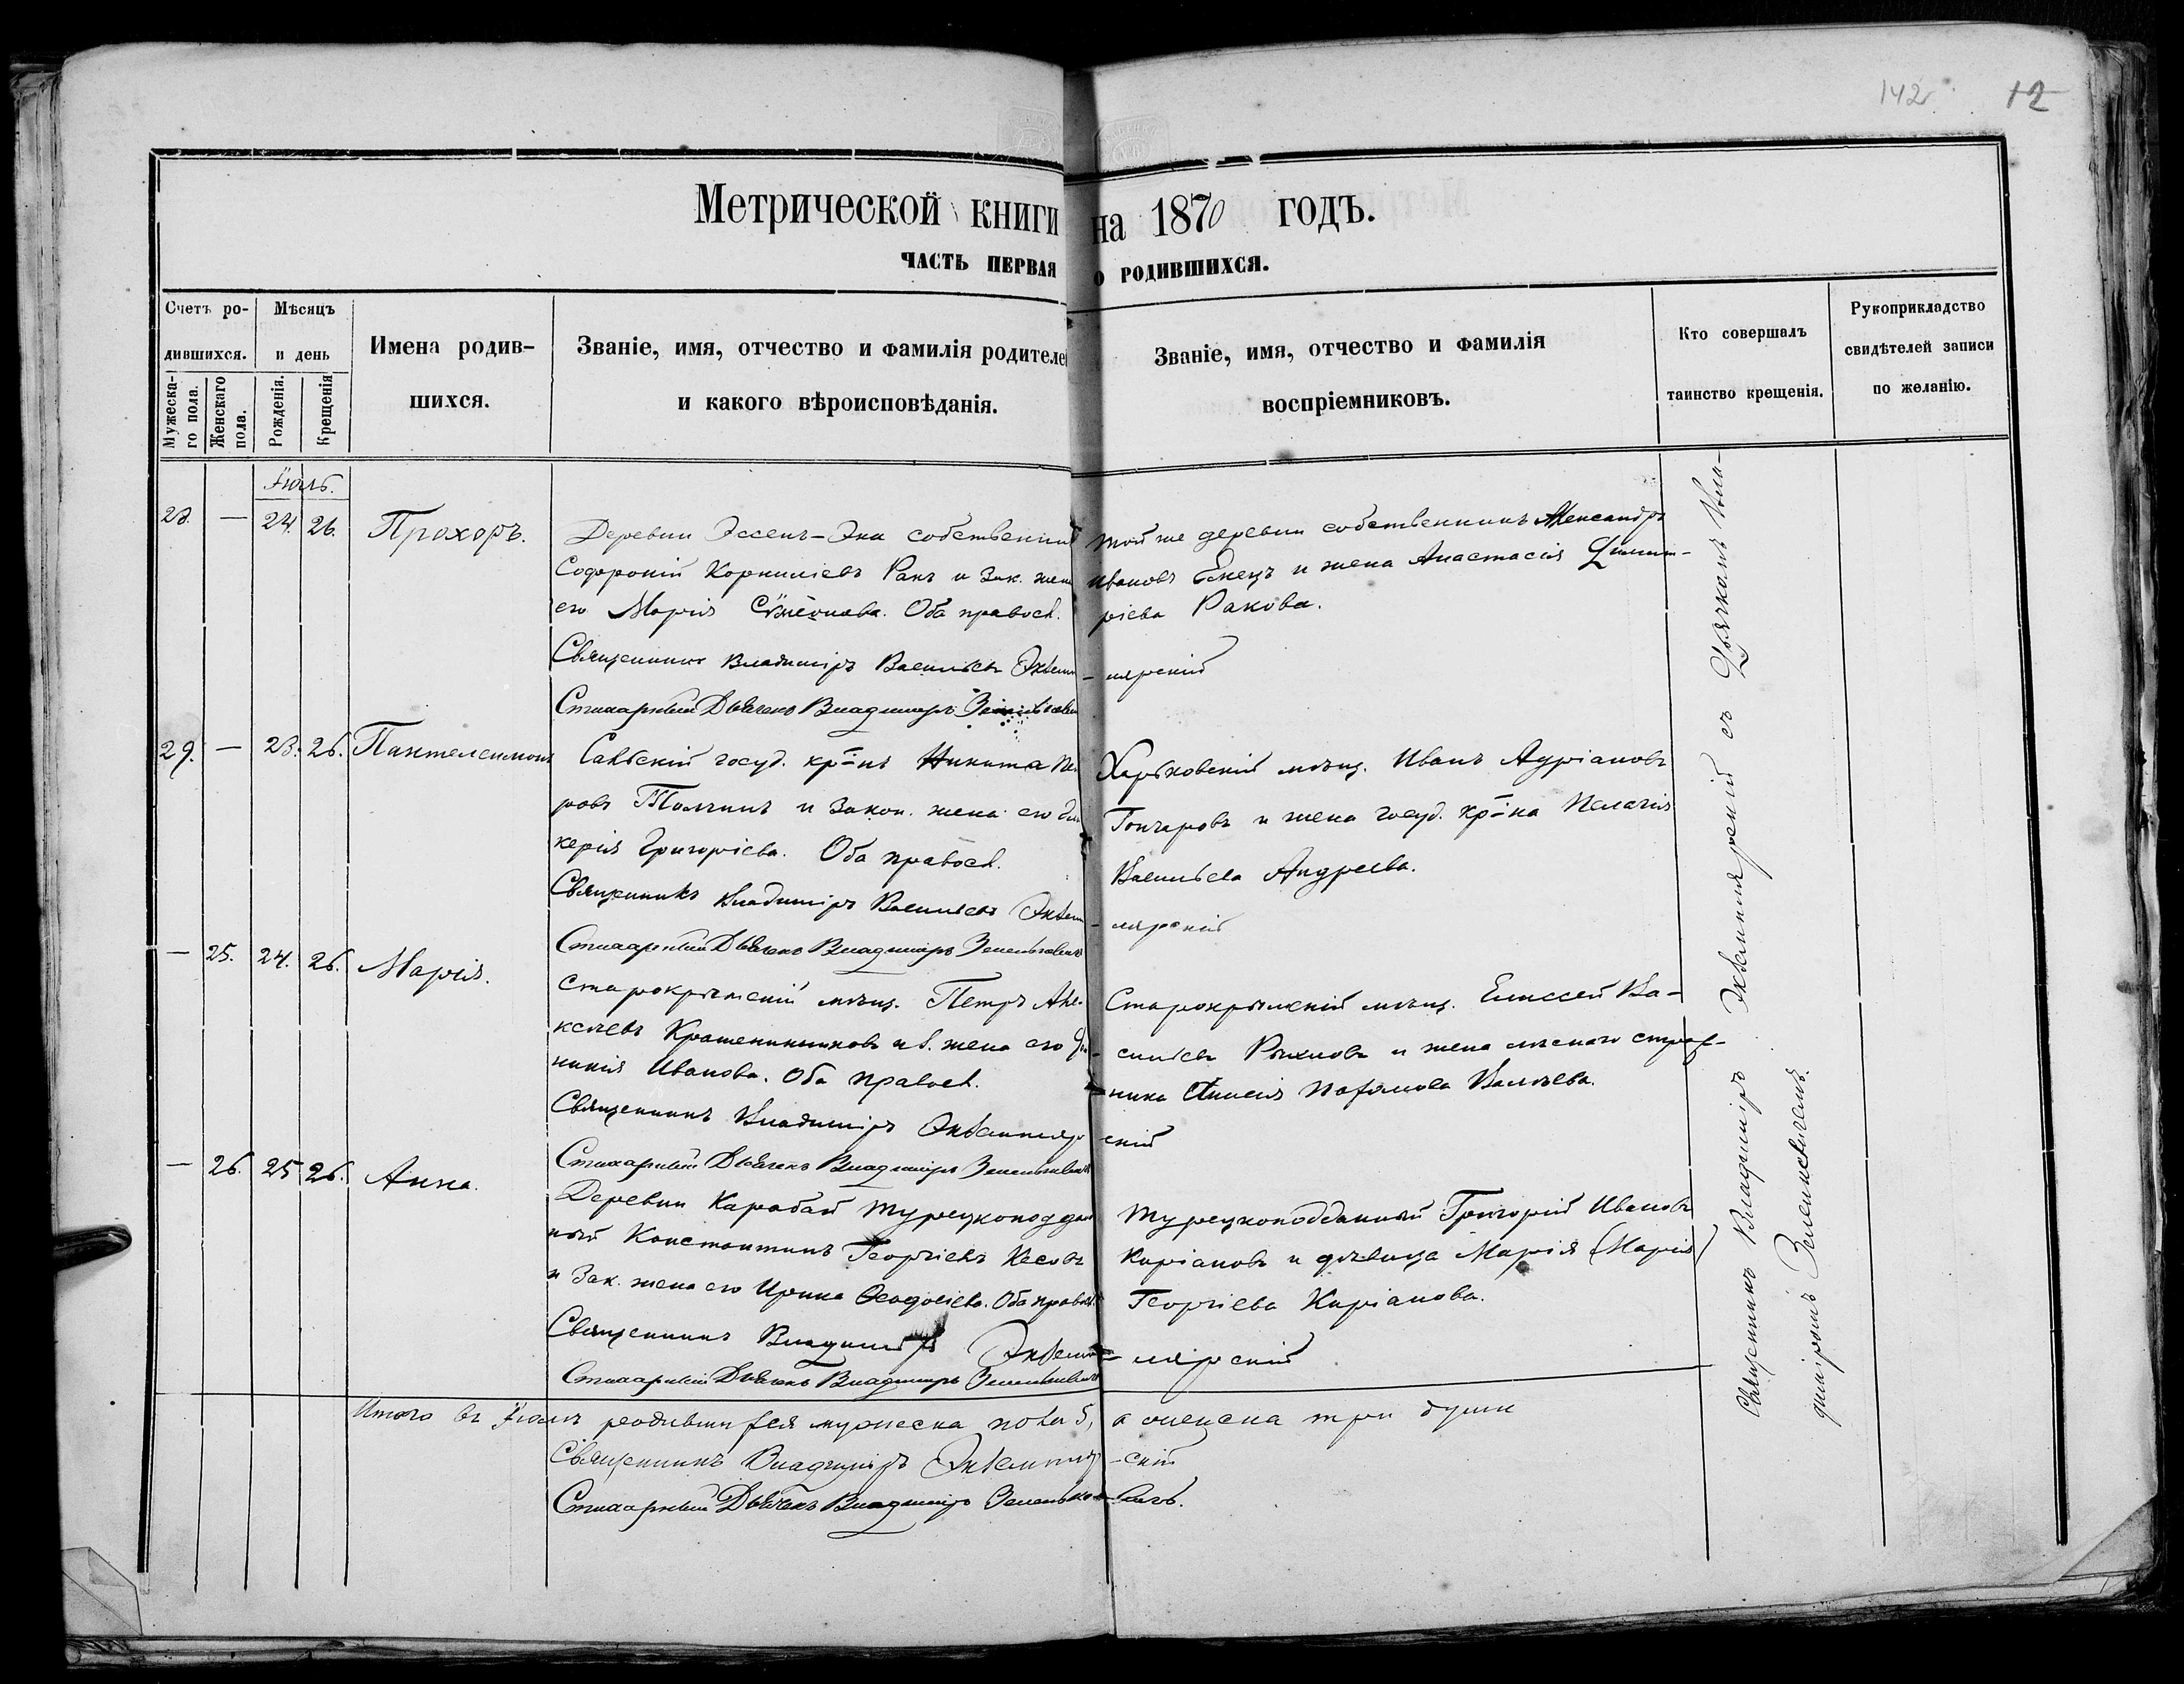 142 12
Метрической книги на 1870 годъ.
ЧАСТЬ ПЕРВАЯ О РОДИВШИХСЯ.
Счетъ родившихся.
Мужеска-го пола.
Женскаго пола.
Мѣсяцъ и день
Рожденія.
Крещенія
Имена родив-
шихся.
Званіе, имя, отчество и фамилія родителей
и какого вѣроисповѣданія.
Званіе, имя, отчество и фамилія
воспріемниковъ.
Кто совершалъ
таинство крещенія.
Рукоприкладство
свидѣтелей записи
по желанію.
Іюль.
28. — 24. 26. Прохоръ.
Деревни Эссенъ-Эки собственникъ
Софроній Корниліевъ Ракъ и зак. жена
его Марія Симеонова. Оба правосл.
Священникъ Владиміръ Васильевъ Экземп-
Стихарный Дьячекъ Владиміръ
той же деревни собственникъ Александръ
Ивановъ Енецъ и жена Анастасія Димит-
ріева Ракова.
лярский
29. — 23. 26. Пантелеимонъ
Сальскій госуд. кр-нъ Никита Пет
ровъ Толчинъ и закон. жена его Гли
керія Григоріева. Оба правосл.
Священникъ Владиміръ Васильевъ Экземп
Стихарный Дьячекъ Владиміръ Зеленкевичъ
Харьковскій мѣщ. Иванъ Адріановъ
Гончаровъ и жена госуд. кр-на Пелагія
Васильева Андреева.
лярскій
— 25. 24. 26. Марія.
Старокрымскій мѣщ. Петръ Але-
ксѣевъ Крашенинниковъ и з. жена его
никія Иванова. Оба правосл.
Священникъ Владиміръ Экземпляр
Стихарный Дьячекъ Владиміръ Зеленкевичъ
Старокрымскій мѣщ. Елиссей Ва-
сильевъ Рыжковъ и жена лѣснаго страж-
ника Васильева.
скій
— 26. 25 26. Анна.
Деревни Карабай турецкоподдан
ный Константинъ Георгіевъ Кесовъ
и зак. жена его Ирина Ѳеодосіева. Оба правосл.
Священникъ Владиміръ Экземп
Стихарный Дьячекъ Владиміръ Зеленкевичъ
Турецкоподданный Григорій Ивановъ
Киріановъ и дѣвица Марія (Марія)
Георгіева Киріанова.
лярскій
Итого въ Іюлѣ родившихся мужеска пола 5, а женска три души
Священникъ Владиміръ Экземпляр-скій
Стихарный Дьячекъ Владиміръ Зеленкевичъ.
Священникъ Владиміръ Экземплярскій съ Дьячкомъ Вла-
диміромъ Зеленкевичемъ.